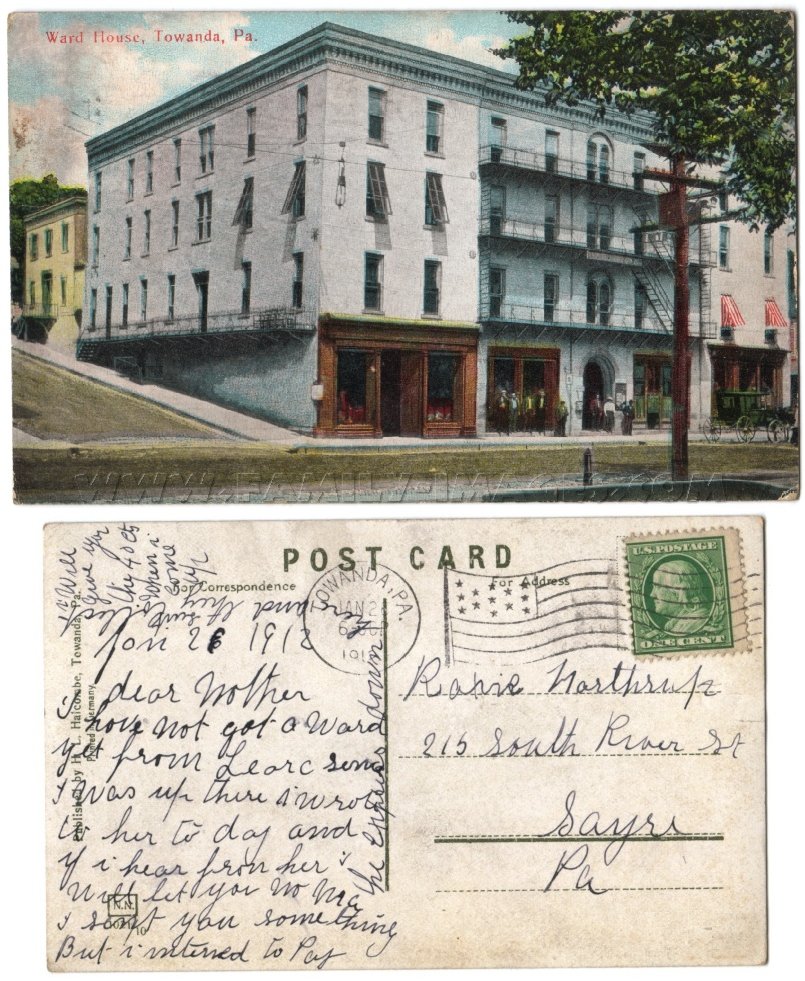 Ward House, Towanda, Pa.
WWW.FAMILY-IMAGES.COM
POST CARD
For Correspondence
For Address
TOWANDA, PA.
JAN 2
191
U.S. POSTAGE
ONE CENT
Published by H. L. Halcombe, Towanda, Pa.
Printed in Germany
N.N.
Jan 26 1912
dear Mother
i have not got a Ward
yet from Learc senc
i Was up there i Wrot
to her to day and
if i hear from her i
Will let you No Ma
i sent you something
But i intened to Pay
the express down
i Will
give you
the 40 cts
When i
come
up
Rosie Northrup
215 South River St
Sayre
Pa